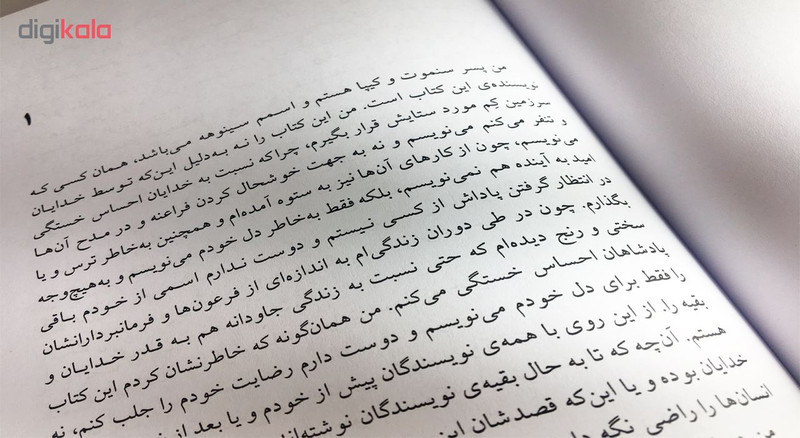 digikala
۱
من پسر سنموت و کیپا هستم و اسمم سینوهه می‌باشد، همان کسی که
نویسنده‌ی این کتاب است. من این کتاب را نه به‌دلیل این‌که توسط خدایان
سرزمین کِم مورد ستایش قرار بگیرم، چراکه نسبت به خدایان احساس خستگی
و تنفر می‌کنم می‌نویسم و نه به جهت خوشحال کردن فراعنه و در مدح آن‌ها
می‌نویسم، چون از کارهای آن‌ها نیز به ستوه آمده‌ام و همچنین به‌خاطر ترس و یا
امید به آینده هم نمی‌نویسم، بلکه فقط به‌خاطر دل خودم می‌نویسم و به‌هیچ‌وجه
در انتظار گرفتن پاداش از کسی نیستم و دوست ندارم اسمی از خودم باقی
بگذارم. چون در طی دوران زندگی‌ام به اندازه‌ای از فرعون‌ها و فرمانبردارانشان
سختی و رنج دیده‌ام که حتی نسبت به زندگی جاودانه هم به قدر خدایان و
پادشاهان احساس خستگی می‌کنم. من همان‌گونه که خاطرنشان کردم این کتاب
را فقط برای دل خودم می‌نویسم و دوست دارم رضایت خودم را جلب کنم، نه
بقیه را. از این روی با همه‌ی نویسندگان پیش از خودم و یا بعد از
هستم. آن‌چه که تا به حال بقیه‌ی نویسندگان
خدایان بوده و یا این‌که قصدشان این
انسان‌ها را راضی نگه